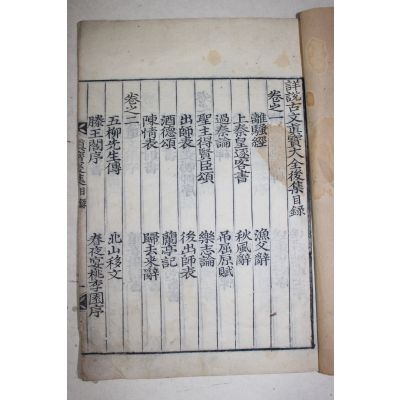 詳說古文眞寶大全後集目録
卷之一
離騷經 漁父辭
上秦皇逐客書 秋風辭
過秦論 吊屈原賦
聖主得賢臣頌 樂志論
出師表 後出師表
酒德頌 蘭亭記
陳情表 歸去來辭
卷之二
五柳先生傳 北山移文
滕王閣序 春夜宴桃李園序
眞寶後集目録